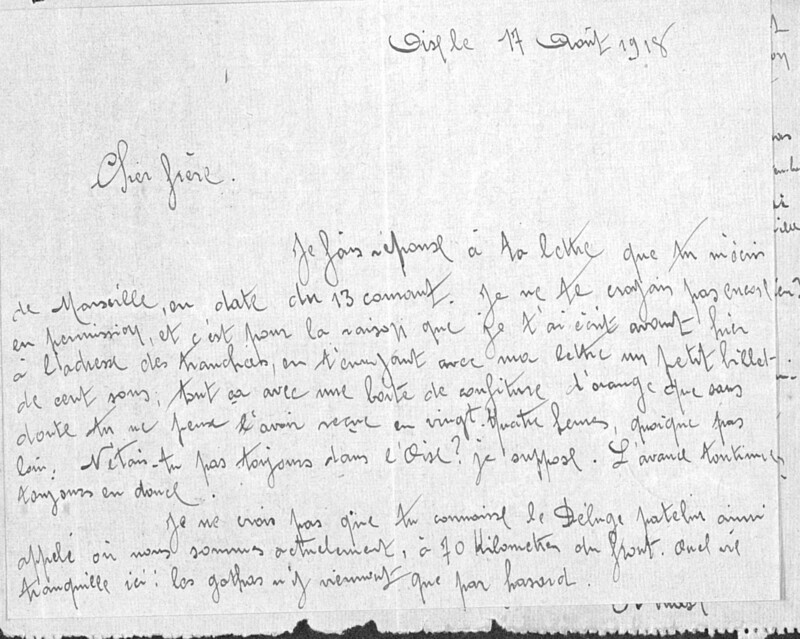 Oise le 17 Août 1918
Cher frère.
Je fais réponse à ta lettre que tu m'écris
de Marseille, en date du 13 courant. Je ne te croyais pas encore
en permission, et c'est pour la raison que je t'ai écrit avant hier
à l'adresse des tranchées, en t'envoyant avec ma lettre un petit billet
de cent sous, tout ça avec une boite de confiture l'orange que sans
doute tu ne peux l'avoir reçue en vingt-quatre heures, quoique pas
loin. N'étais-tu pas toujours dans l'Oise? je suppose. L'avance continue
toujours en doucе.
Je ne crois pas que tu connaisse le Déluge patelin ainsi
appelé où nous sommes actuelement, à 70 Kilometres du front. Quel
tranquille ici: les gothas n'y viennent que par hasard.